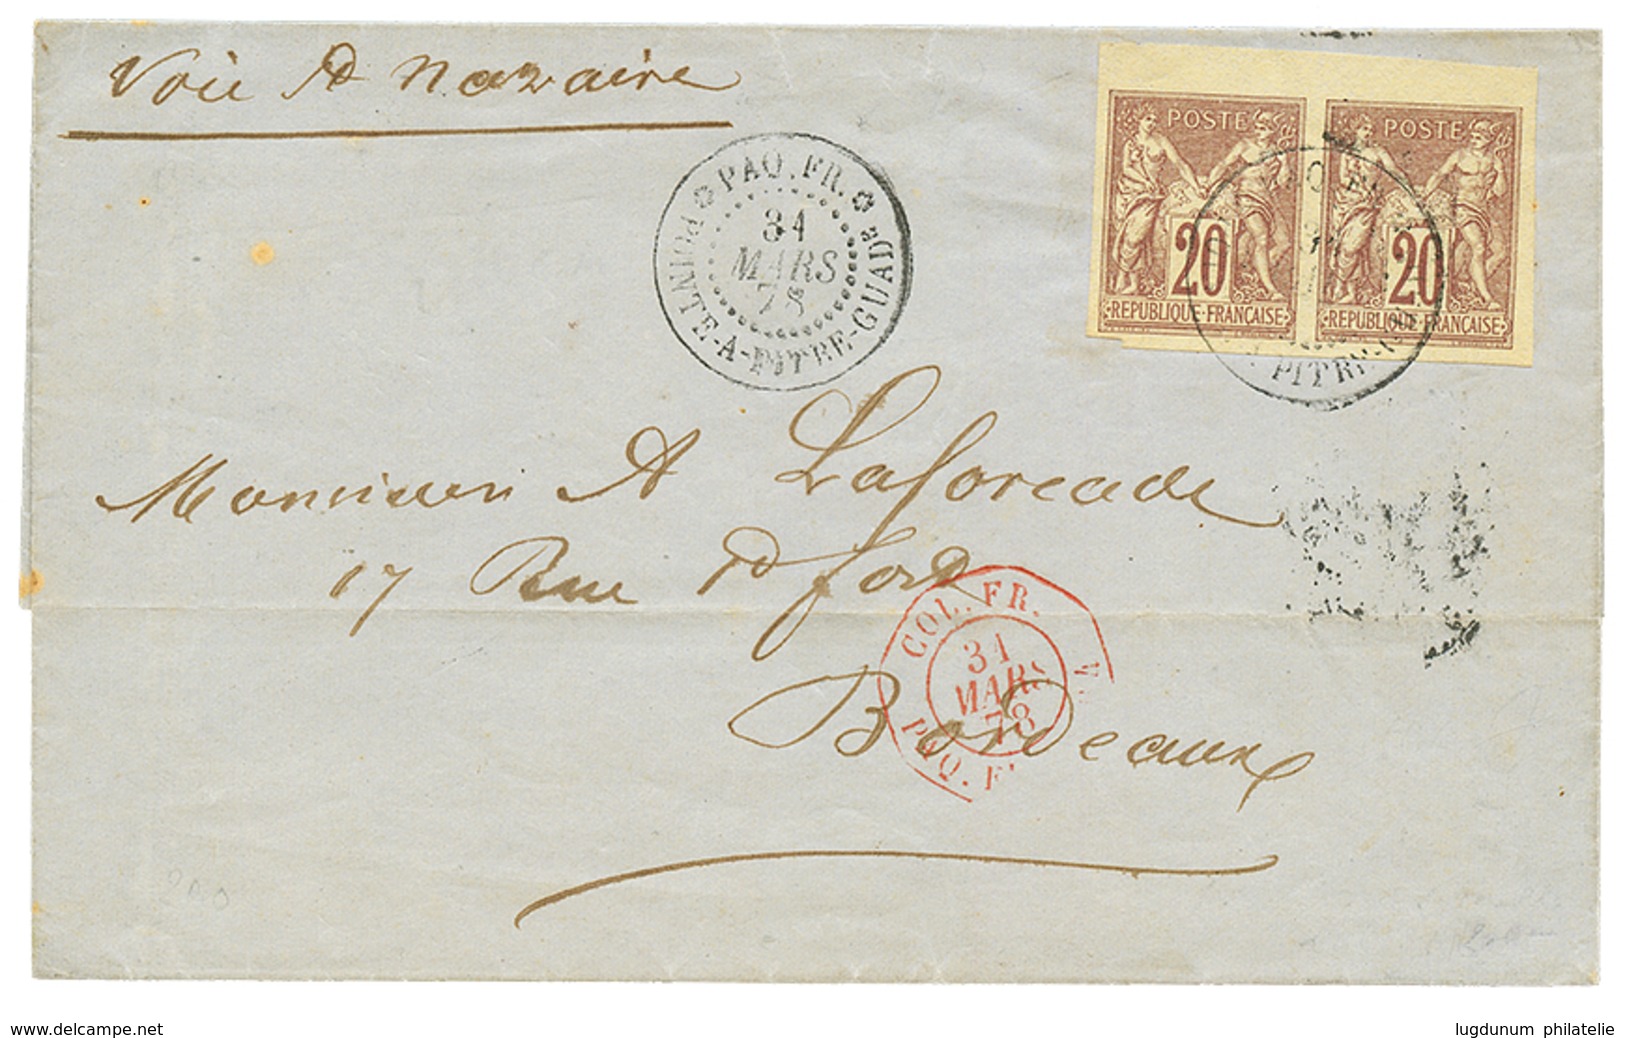 Voie St Nazaire
PAQ. FR.
31
MARS
78
POINTE-A-PITRE-GUADe
POSTE
20
REPUBLIQUE·FRANÇAISE
POSTE
20
REPUBLIQUE·FRANÇAISE
PITRE
Monsieur A Laforcade
17 Rue
Bordeaux
COL. FR.
31
MARS
78
PAQ. F
www.delcampe.net
lugdunum philatelie